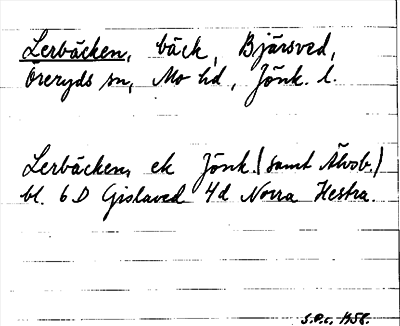 Lerbäcken, bäck, Bjärsved,
Öreryds sn, Mo hd, Jönk. l.
Lerbäcken, ek Jönk. (samt Älvsb.)
bl. 6D Gislaved 4d Norra Hestra.
S.P.c, 1958.